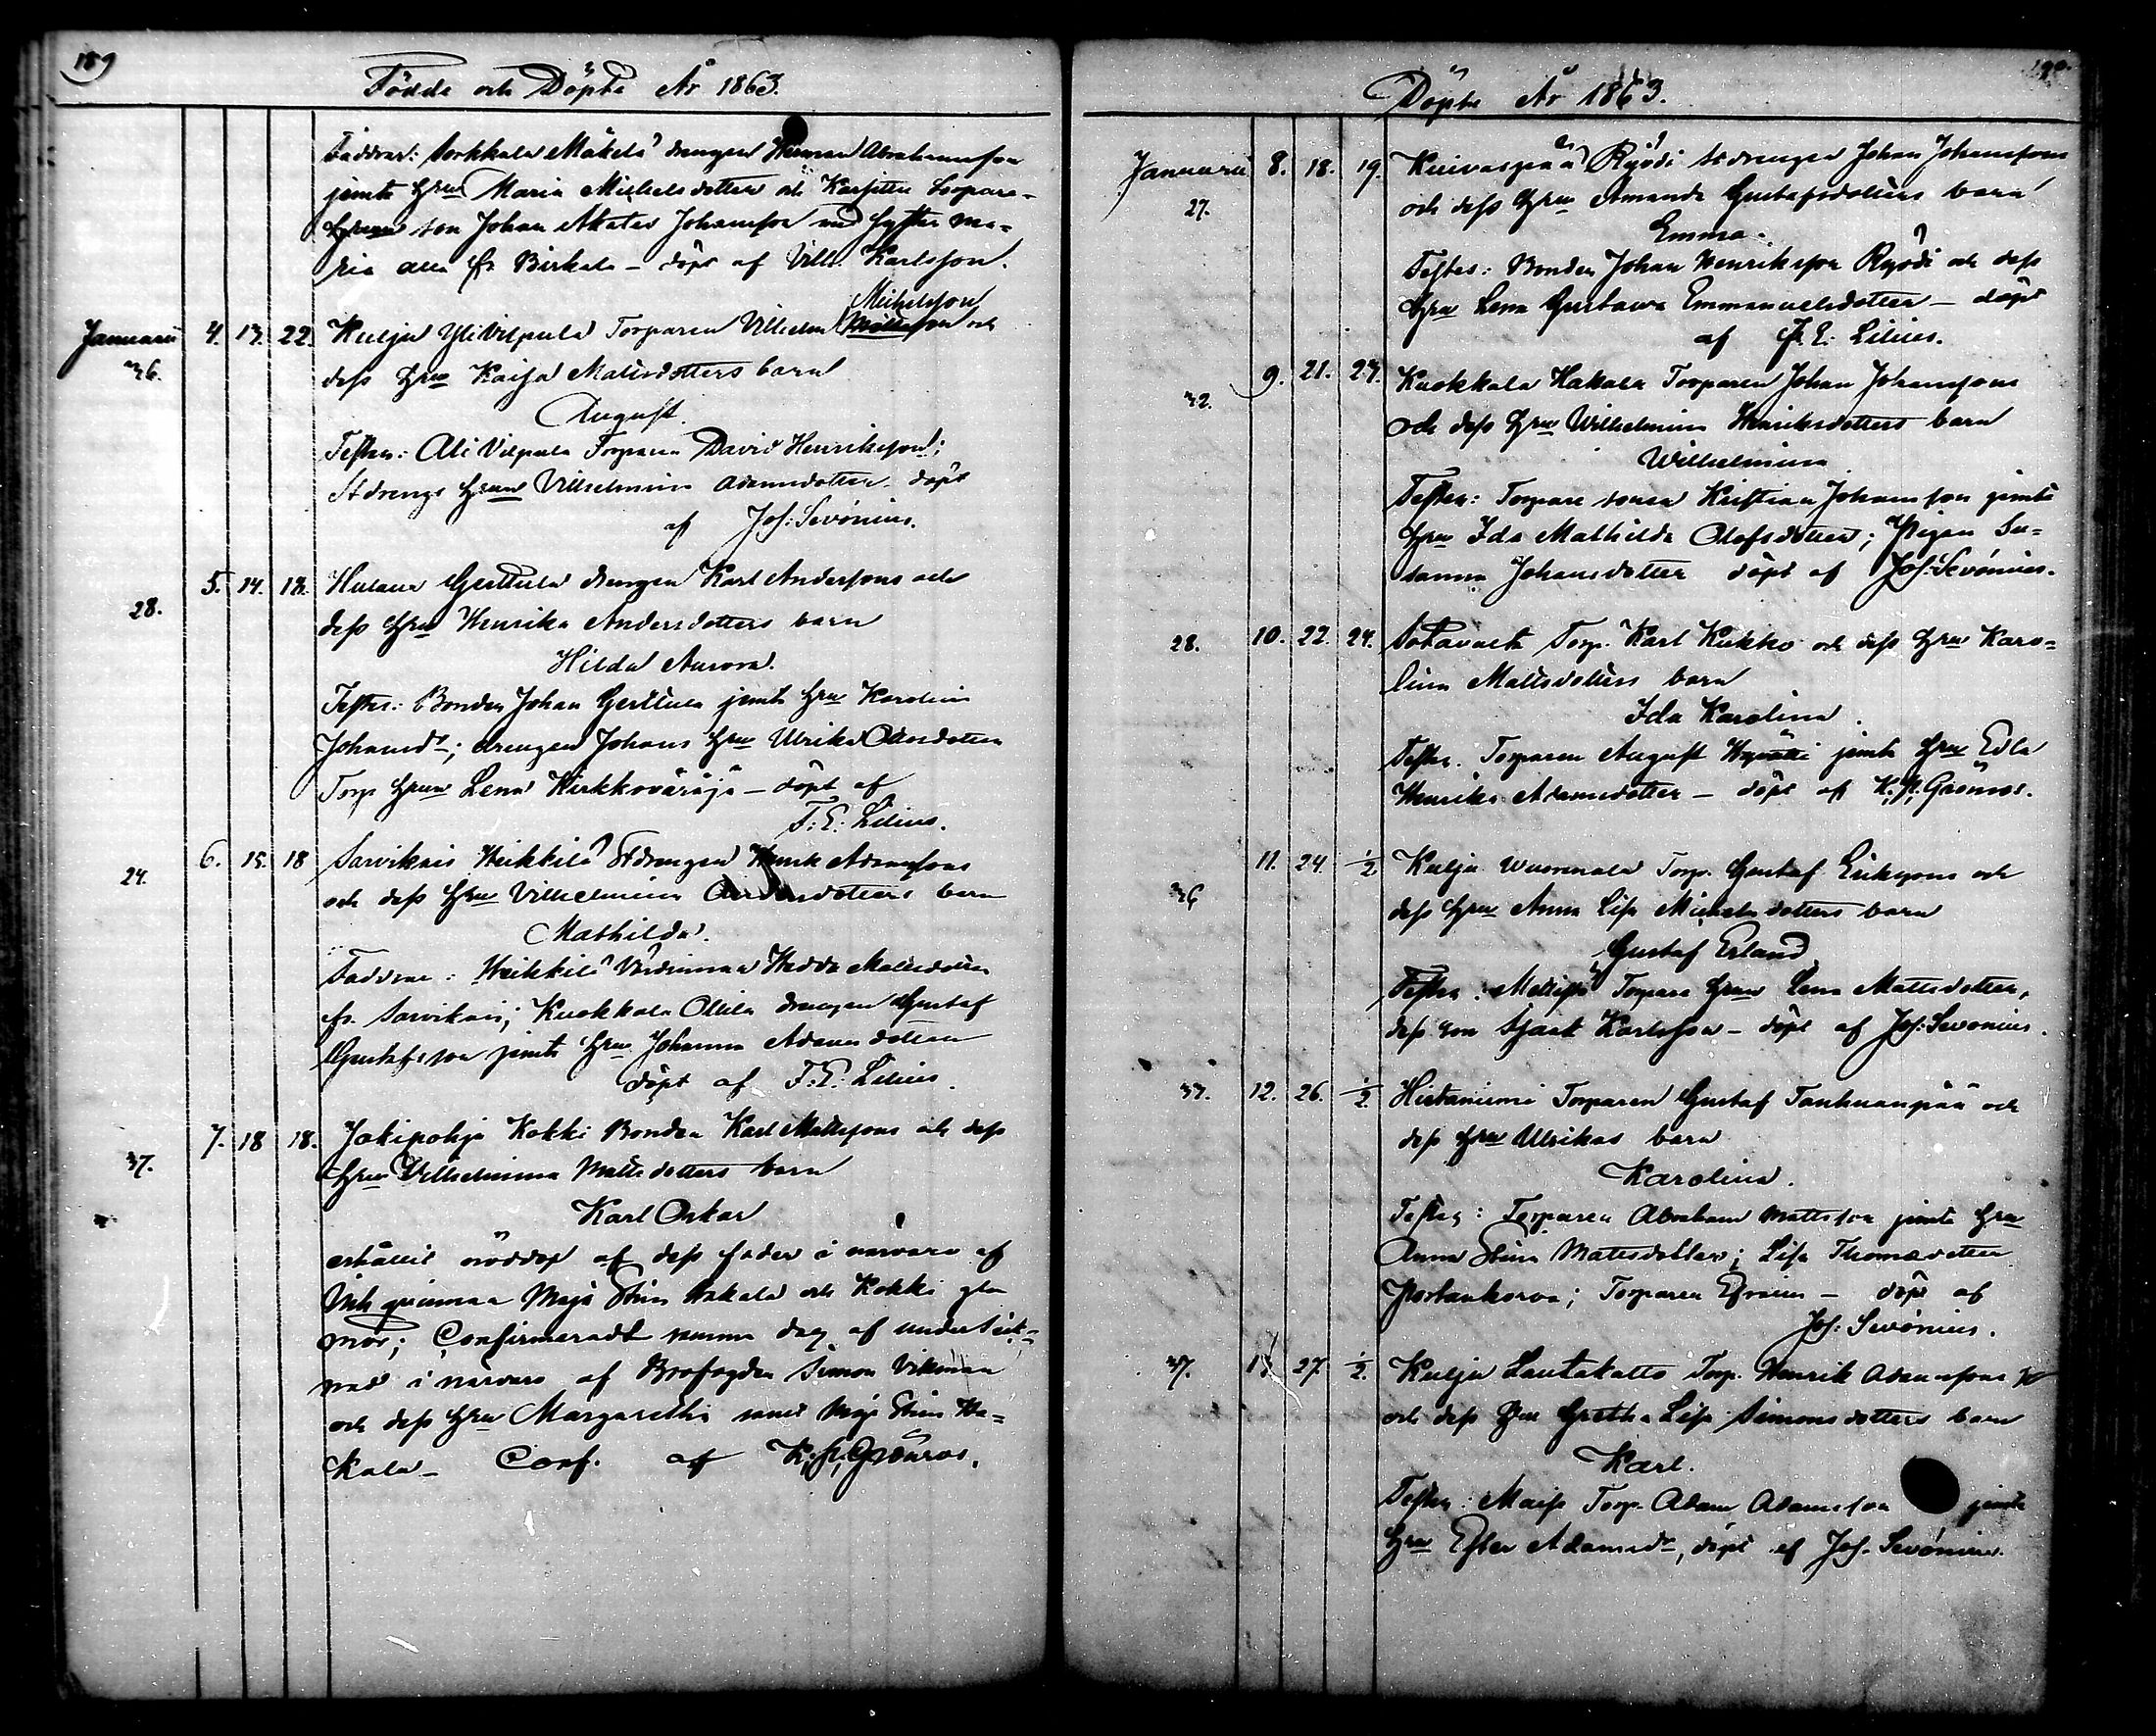 189
Födde och Döpte År 1863.
Faddrar: Sorkkala Mäkelä drengen Herman Abrahamsson
jemte Hru Maria Michelsdotter och Karjittu Torpare-
son Johan Matts Johansson med syster Ma-
ria alla fr. Birkala – döpt af Vill. Karlsson.
Michelsson
Januarii 4. 13. 22. Kulju Yli Vilpula Torparen Vilhelm Mattsson och
36.
dess Hru Kaisa Mattsdotters barn
August.
Testes: Ali Vilpula Torparen David Henriksson;
St drengs Hrun Vilhelmina Adamsdotter döpt
af Jos: Sevónius.
5. 14. 18. Hulaus Gerttula drengen Karl Anderssons och
28.
dess Hru Henrika Andersdotters barn
Hilda Aurora.
Testes: Bonden Johan Gerttula jemte Hru Karolina
Johansdr; drengen Johans Hru Ulrika
Torp Hrun Lena Kirkkoväräjä – döpt af
F: E: Lilius.
6. 15. 18 Sarvikais Heikkilä St drengen Henrik Adamssons
24.
och dess Hru Vilhelmina Andersdotters barn
Mathilda.
Faddrar: Heikkilä Värdinnan Hedda Mattsdotter
fr. Sarvikais; Kuokkala Ollila drengen Gustaf
Gustafsson jemte Hru Johanna Adamsdotter
döpt af F: E: Lilius.
7. 18 18. Jokipohja Kokki Bonden Karl Mattssons och dess
37.
Hru Vilhelmina Mattsdotters barn
Karl Oskar
erhållit nöddop af dess fader i närvaro af
Inh qvinnan Maja Stina Hakala och Kokki gla
mor; Confirmeradt samma dag af underteck-
nad i närvaro af Brofogden Simon Vikman
och dess Hru Margaretha samt Maja Stina Ha-
kala – Conf. af K. A. Grönroos.
190.
Döpte År 1863.
Januarii 8. 18. 19. Kuivaspää Ryödi St drengen Johan Johanssons
27.
och dess Hru Amanda Gustafsdotters barn
Emma.
Testes: Bonden Johan Henriksson Ryödi och dess
Hru Lena Gustawa Emmanuelsdotter – döpt
af F. E. Lilius.
9. 21. 24. Kuokkala Hakala Torparen Johan Johanssons
32.
och dess Hru Wilhelmina Henriksdotters barn
Wilhelmina
Testes: Torpare sonen Kristian Johansson jemte
Hru Ida Mathilda Olofsdotter; Pigan Su-
sanna Johansdotter döpt af Jos: Sevónius.
28. 10. 22. 24. Sotavalta Torp. Karl Kukko och dess Hru Karo-
lina Mattsdotters barn
Ida Karolina.
Testes. Torparen August jemte Hru Edla
Henrika Adamsdotter – döpt af K. A. Grönroos.
11. 24. 1/2 Kulju Wuorenala Torp. Gustaf Erikssons och
36
dess Hru Anna Lisa Michelsdotters barn
Gustaf Erland
Testes: Torpare Hrun Lena Mattsdotter,
dess son Isaak Karlsson – döpt af Jos: Sevonius.
37. 12. 26. 1/2. Hietaniemi Torparen Gustaf Tanhuanpää och
dess Hru Ulrikas barn
Karolina.
Testes: Torparen Abraham Mattsson jemte Hru
Anna Stina Mattsdotter; Lisa Thomasdotter
Portankorva; Torparen Efraim – döpt af
Jos: Sevónius.
37. 13 27. 1/2. Kulju Lautakatto Torp. Henrik Adamssons
och dess Hru Gretha Lisa Simonsdotters barn
Karl.
Testes: Maisi Torp. Adam Adamsson jemte
Hru Ester Adamsdr, döpt af Jos. Sevónius.